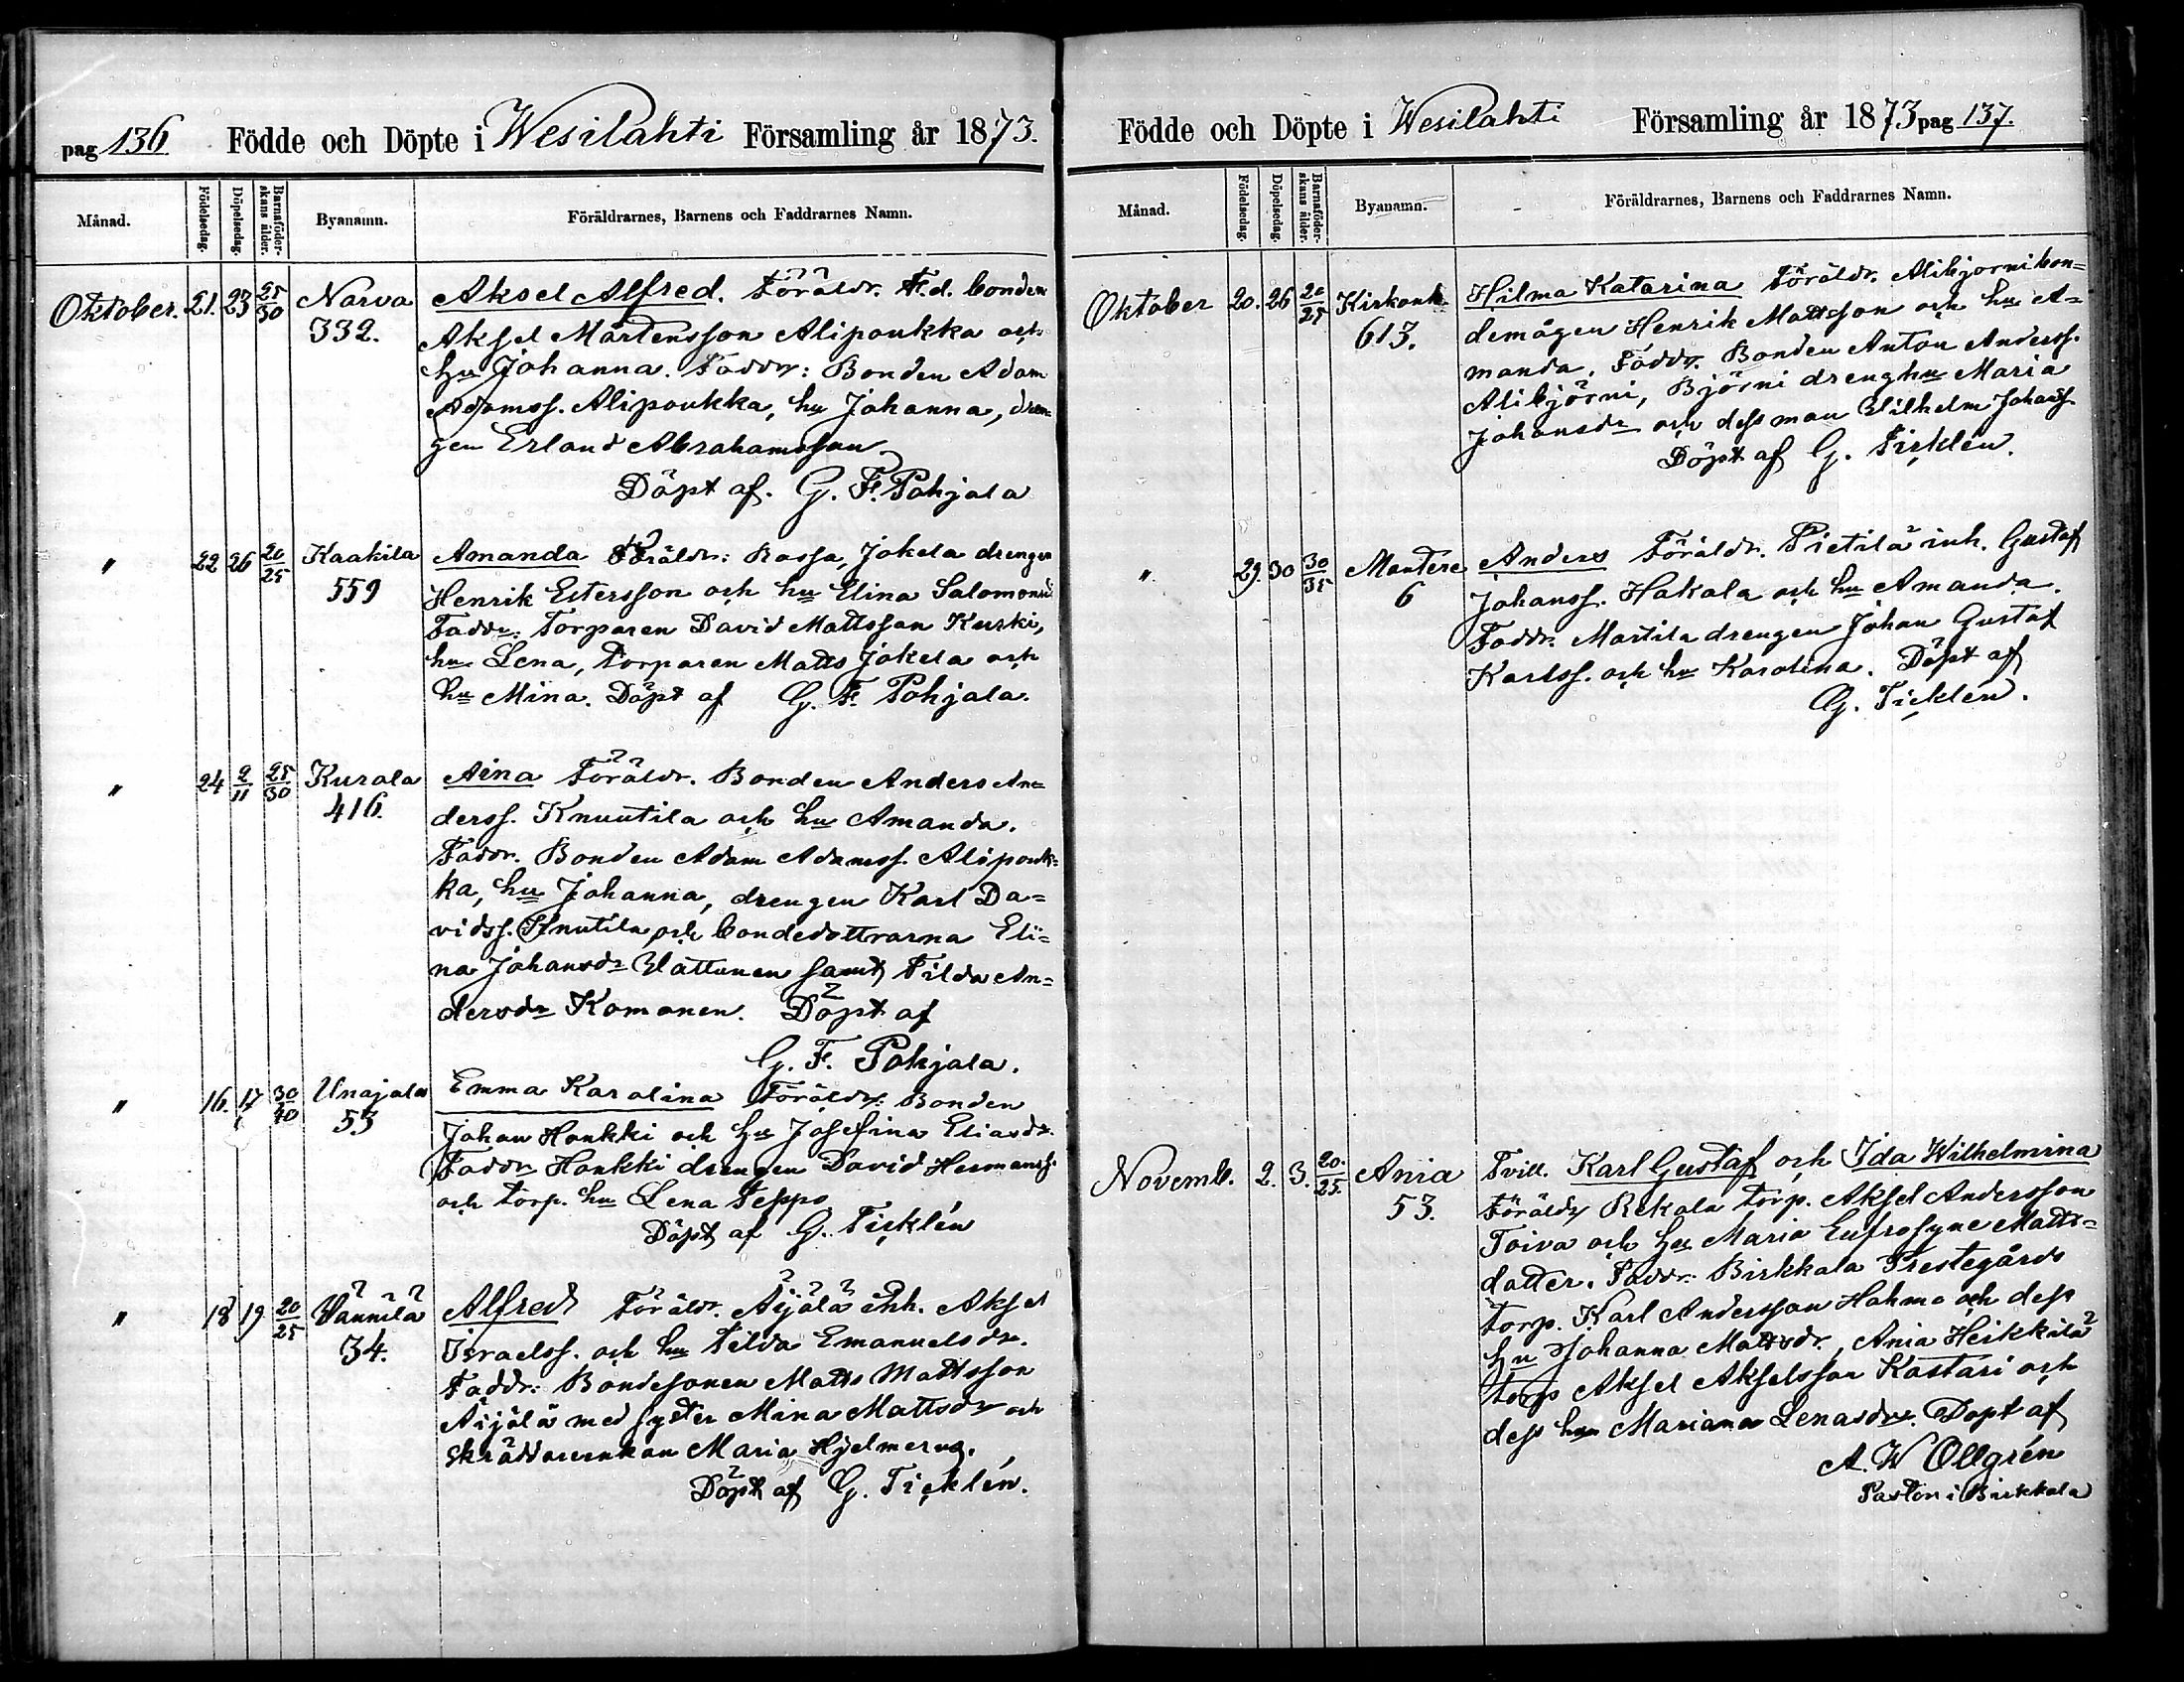 pag 136 Födde och Döpte i Wesilahti Församling år 1873.
Månad. Födelsedag. Döpelsedag. Barnaföderskans ålder. Byanamn. Föräldrarnes, Barnens och Faddrarnes Namn.
Oktober. 21. 23 25/30 Narva Aksel Alfred. Föräldr. F.d. bonden
332. Aksel Mårtensson Alipoukka och
hu Johanna. Faddr: Bonden Adam
Adamss. Alipoukka, hu Johanna, dren-
gen Erland Abrahamsson
Döpt af. G. F. Pohjala
" 22 26 20/25 Kaakila Amanda Föräldr: Rassa, Jokela drengen
559 Henrik Estersson och hu Elina Salomonsd
Faddr: Torparen David Mattsson Kurki,
hu Lena, torparen Matts Jokela och
hu Mina. Döpt af G. F. Pohjala.
" 24 2/11 25/30 Kurala Aina Föräldr. Bonden Anders An=
416. derss. Knuutila och hu Amanda.
Faddr. Bonden Adam Adamss. Alipouk=
ka, hu Johanna, drengen Karl Da=
vidss. Knutila och bondedottrarna Eli=
na Johansdr Wattunen samt Tilda An=
dersdr Komonen. Döpt af
G. F. Pohjala.
" 16. 17 30/40 Unajala Emma Karolina Föräldr: Bonden
53 Johan Honkki och hu Josefina Eliasdr.
Faddr Honkki drengen David Hermanss.
och torp. hu Lena Seppo
Döpt af G. Ticklén
" 18 19 20/25 Vännilä Alfred Föräldr. Äijälä inh. Aksel
34. Israelss. och hu Tilda Emanuelsdr.
Faddr: Bondesonen Matts Mattsson
Äijälä med syster Mina Mattsdr och
Skräddarenkan Maria Hjelmerus.
Döpt af G. Ticklén.
Födde och Döpte i Wesilahti Församling år 1873 pag 137.
Månad. Födelsedag. Döpelsedag. Barnaföderskans ålder. Byanamn. Föräldrarnes, Barnens och Faddrarnes Namn.
Oktober 20. 26 20/25 Kirkonk. Hilma Katarina Föräldr. Alibjorni bon=
613. demågen Henrik Mattsson och hu A=
manda. Faddr. Bonden Anton Anderss.
Alibjörni, Björni drenghu Maria
Johansdr och dess man Wilhelm Johanss.
Döpt af G. Ticklén.
" 29. 30 30/35 Mantere Anders Föräldr. Pietilä inh. Gustaf
6 Johanss. Hakala och hu Amanda.
Faddr. Martila drengen Johan Gustaf
Karlss. och hu Karolina. Döpt af
G. Ticklén.
Novemb. 2. 3. 20./25. Ania Tvill. Karl Gustaf och Ida Wilhelmina
53. Föräldr Rekola torp. Aksel Andersson
Toiva och hu Maria Eufrosyne Matts=
datter. Faddr. Birkkala Prestegårds
torp. Karl Andersson Hahmo och dess
hu Johanna Mattsdr, Ania Heikkilä
torp Aksel Akselsson Kastari och
dess hu Mariana Lenasdr. Döpt af
A. W Ollgrén
Pastor i Birkkala